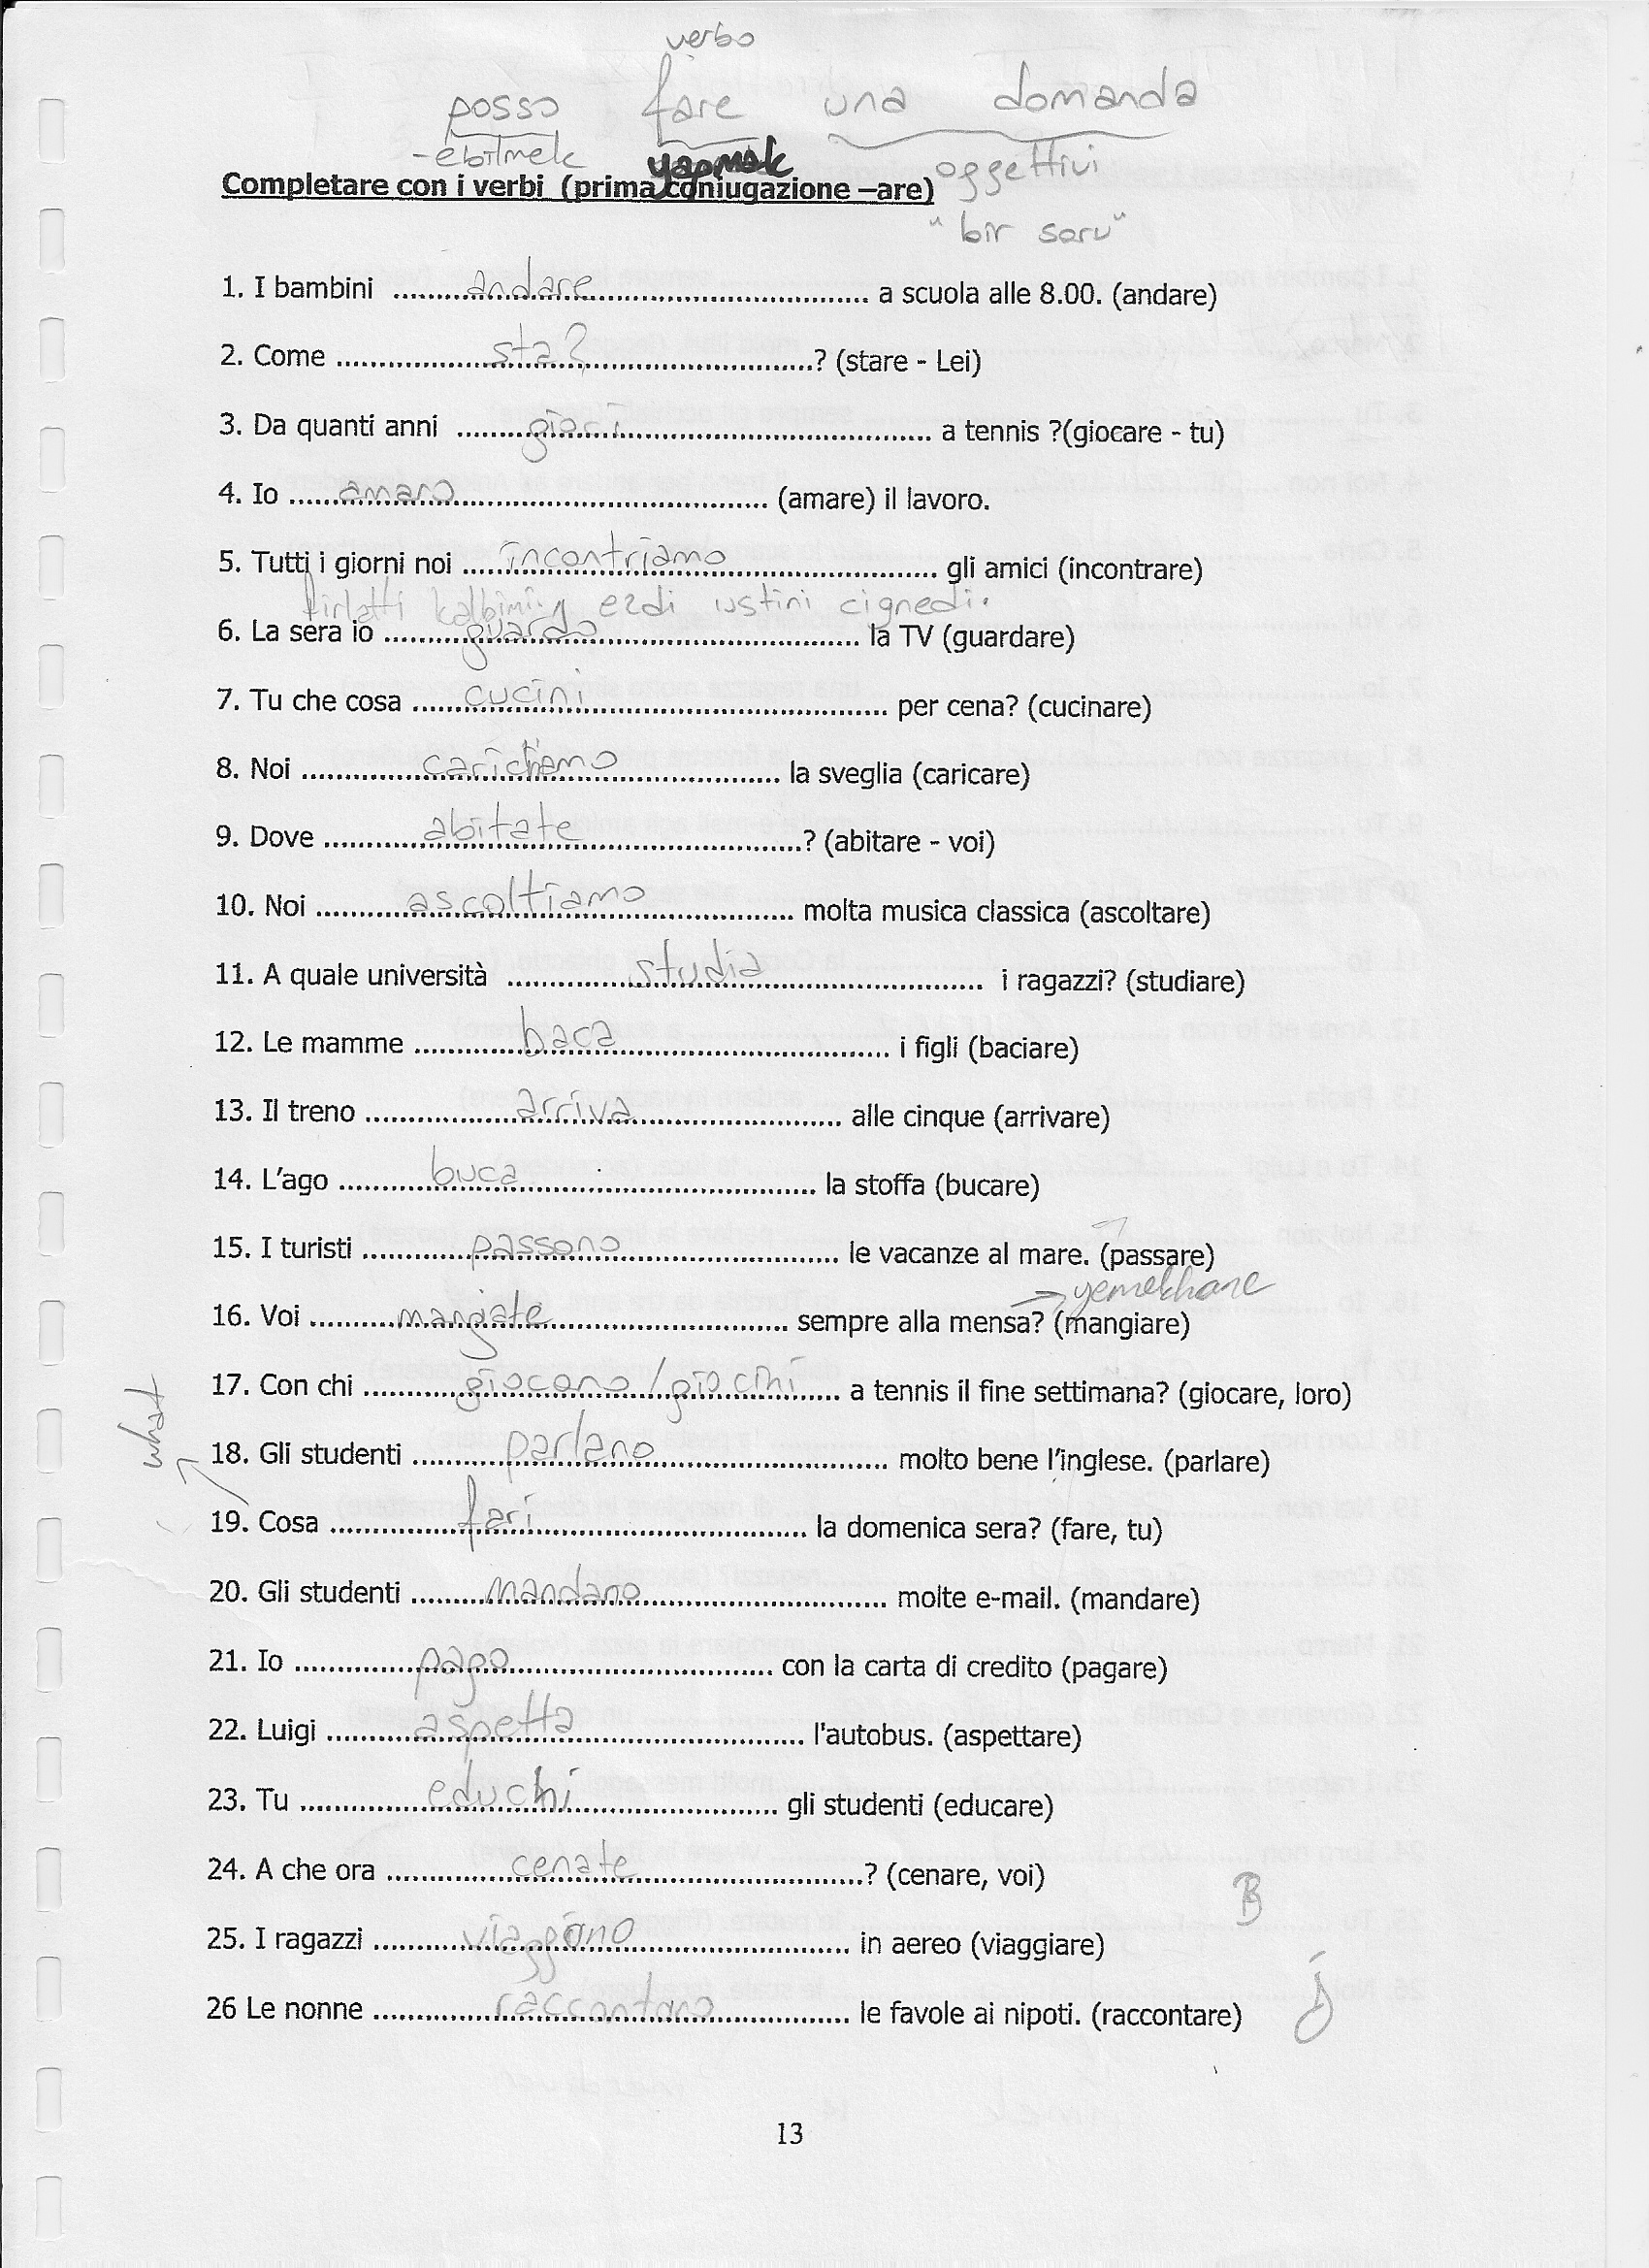 verbo
posso fare una domanda
-ebilmek yapmak oggettivi
Completare con i verbi (prima coniugazione –are)
" bir soru "
1. I bambini ..........andare.......... a scuola alle 8.00. (andare)
2. Come ..........sta?..........? (stare - Lei)
3. Da quanti anni .................... a tennis ?(giocare - tu)
4. Io ..........amaro.......... (amare) il lavoro.
5. Tutti i giorni noi ..........incontriamo.......... gli amici (incontrare)
fırlattı kalbimi ezdi üstünü çiğnedi.
6. La sera io ..........guardo.......... la TV (guardare)
7. Tu che cosa ..........cucini.......... per cena? (cucinare)
8. Noi ..........carichiamo.......... la sveglia (caricare)
9. Dove ..........abitate..........? (abitare - voi)
10. Noi ..........ascoltiamo.......... molta musica classica (ascoltare)
11. A quale università ..........studia.......... i ragazzi? (studiare)
12. Le mamme ..........baca.......... i figli (baciare)
13. Il treno ..........arriva.......... alle cinque (arrivare)
14. L'ago ..........buca.......... la stoffa (bucare)
15. I turisti ..........passono.......... le vacanze al mare. (passare)
yemekhane
16. Voi ..........mangiate.......... sempre alla mensa? (mangiare)
17. Con chi ..........giocano / giochi.......... a tennis il fine settimana? (giocare, loro)
what
18. Gli studenti ..........parlano.......... molto bene l'inglese. (parlare)
19. Cosa ..........fari.......... la domenica sera? (fare, tu)
20. Gli studenti ..........mandano.......... molte e-mail. (mandare)
21. Io ..........pago.......... con la carta di credito (pagare)
22. Luigi ..........aspetta.......... l'autobus. (aspettare)
23. Tu ..........educhi.......... gli studenti (educare)
24. A che ora ..........cenate..........? (cenare, voi)
B
25. I ragazzi ..........viaggiano.......... in aereo (viaggiare)
26 Le nonne ..........raccontano.......... le favole ai nipoti. (raccontare)
13